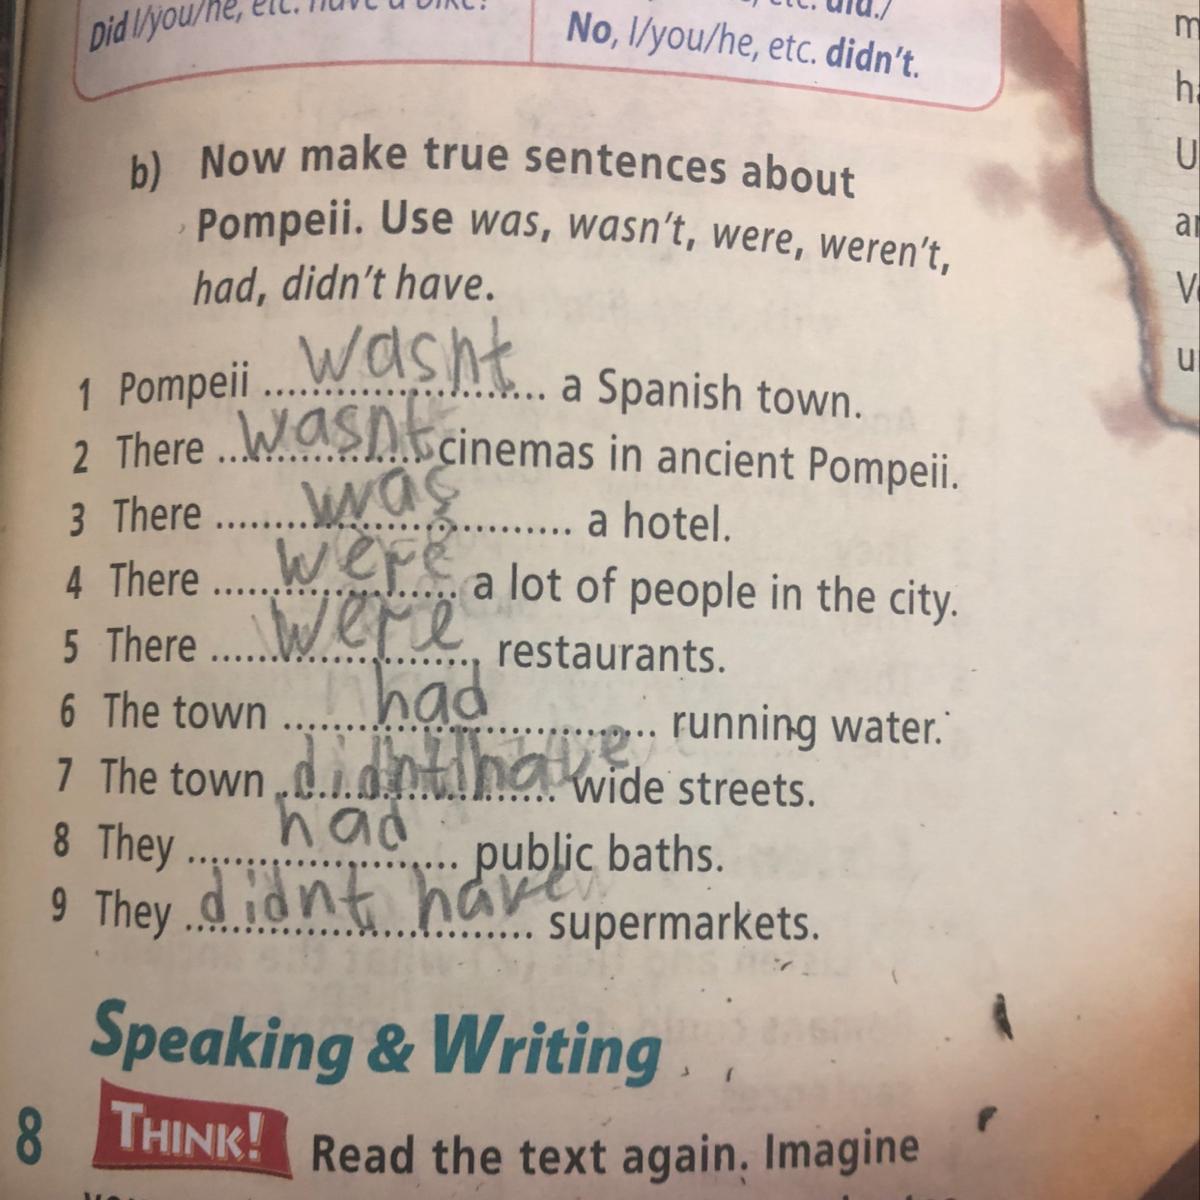 Did I/you/he, etc. have a bike?
etc. did./
No, I/you/he, etc. didn't.
b) Now make true sentences about
Pompeii. Use was, wasn't, were, weren't,
had, didn't have.
1 Pompeii wasnt a Spanish town.
2 There wasnt cinemas in ancient Pompeii.
3 There was a hotel.
4 There were a lot of people in the city.
5 There were restaurants.
6 The town had running water.
7 The town didnt have wide streets.
8 They had public baths.
9 They didnt have supermarkets.
Speaking & Writing
8 THINK! Read the text again. Imagine